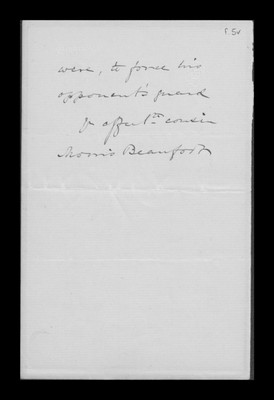 were, to force his
opponent's guard
Yr affec 1st cousin
Morris Beaufort